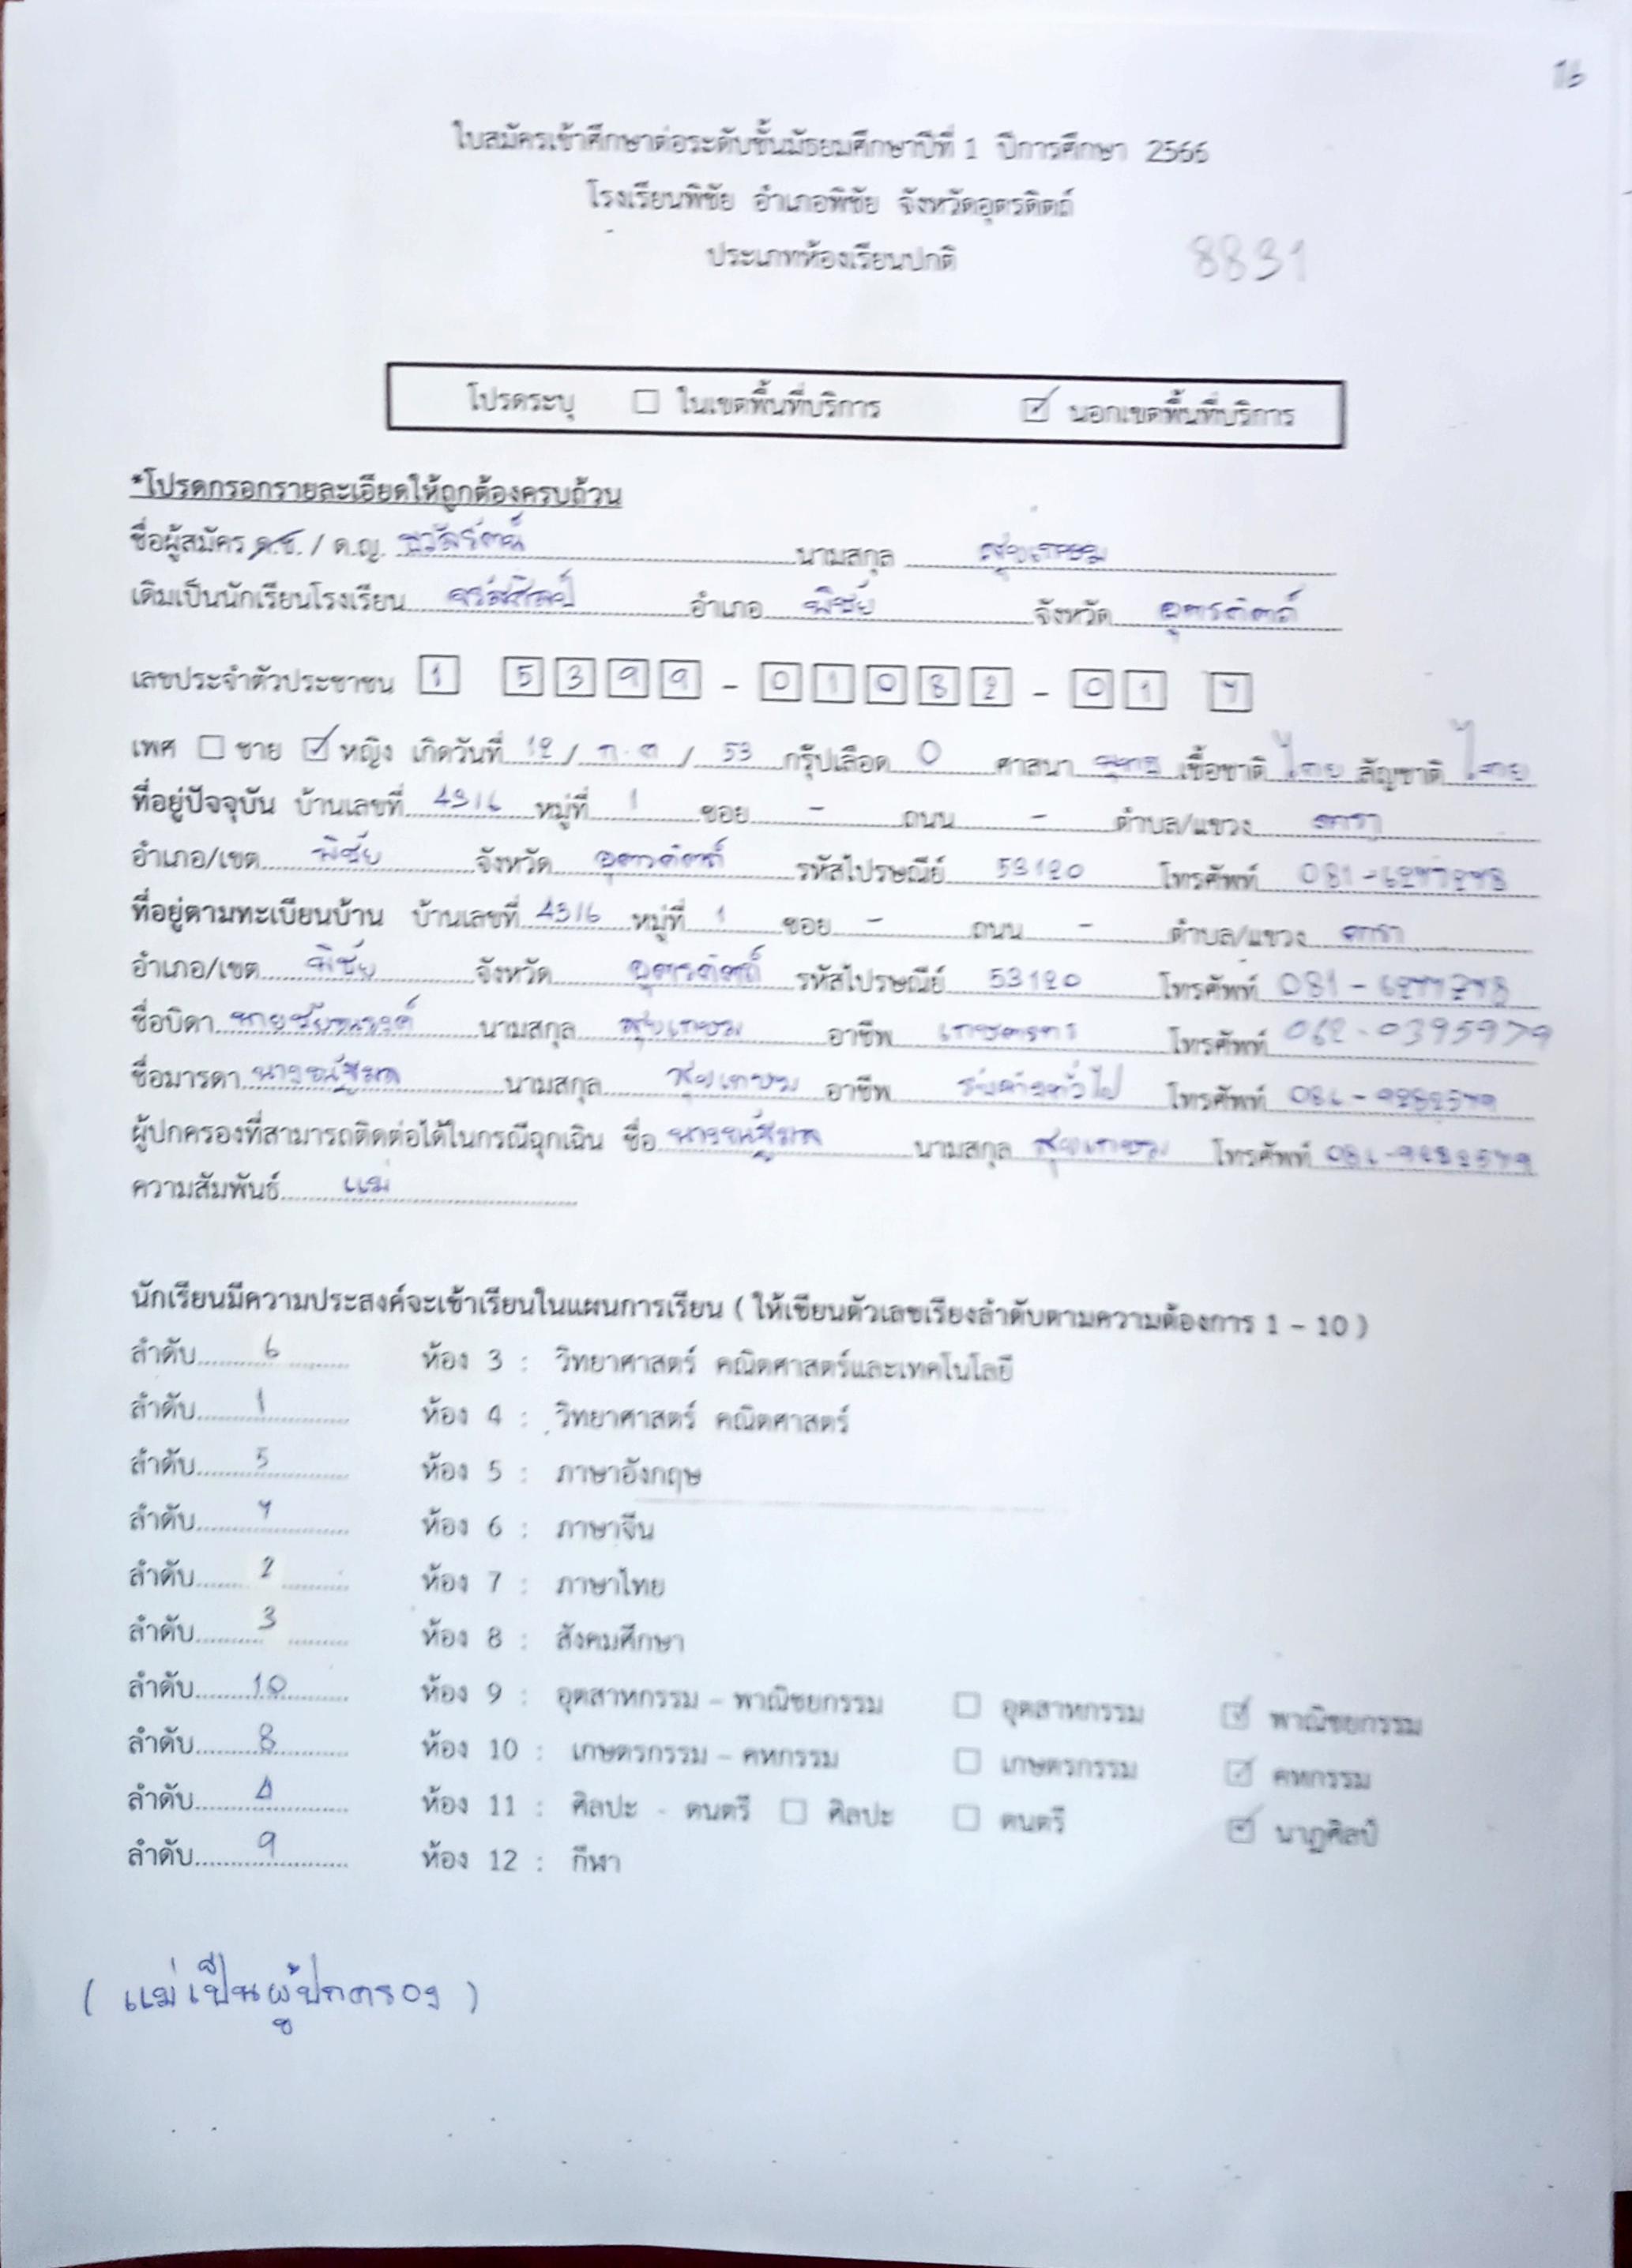 16
ใบสมัครเข้าศึกษาต่อระดับชั้นมัธยมศึกษาปีที่ 1 ปีการศึกษา 2566
โรงเรียนพิชัย อำเภอพิชัย จังหวัดอุตรดิตถ์
ประเภทห้องเรียนปกติ 8831
โปรดระบุ ☐ ในเขตพื้นที่บริการ ☑ นอกเขตพื้นที่บริการ
*โปรดกรอกรายละเอียดให้ถูกต้องครบถ้วน
ชื่อผู้สมัคร ด.ช. / ด.ญ. ธวัลรัตน์ นามสกุล สุขเกษม
เดิมเป็นนักเรียนโรงเรียน จรัสศิลป์ อำเภอ พิชัย จังหวัด อุตรดิตถ์
เลขประจำตัวประชาชน 1 5399 - 01082 - 01 7
เพศ ☐ ชาย ☑ หญิง เกิดวันที่ 12 / ก.ค / 53 กรุ๊ปเลือด O ศาสนา พุทธ เชื้อชาติ ไทย สัญชาติ ไทย
ที่อยู่ปัจจุบัน บ้านเลขที่ 43/6 หมู่ที่ 1 ซอย - ถนน - ตำบล/แขวง
อำเภอ/เขต พิชัย จังหวัด อุตรดิตถ์ รหัสไปรษณีย์ 53120 โทรศัพท์
ที่อยู่ตามทะเบียนบ้าน บ้านเลขที่ 43/6 หมู่ที่ 1 ซอย - ถนน - ตำบล/แขวง
อำเภอ/เขต พิชัย จังหวัด อุตรดิตถ์ รหัสไปรษณีย์ 53120 โทรศัพท์
ชื่อบิดา นายชัยณรงค์ นามสกุล สุขเกษม อาชีพ เกษตรกร โทรศัพท์ 062-0395979
ชื่อมารดา นามสกุล สุขเกษม อาชีพ รับจ้างทั่วไป โทรศัพท์
ผู้ปกครองที่สามารถติดต่อได้ในกรณีฉุกเฉิน ชื่อ นามสกุล สุขเกษม โทรศัพท์
ความสัมพันธ์ แม่
นักเรียนมีความประสงค์จะเข้าเรียนในแผนการเรียน ( ให้เขียนตัวเลขเรียงลำดับตามความต้องการ 1 - 10 )
ลำดับ 6 ห้อง 3 : วิทยาศาสตร์ คณิตศาสตร์และเทคโนโลยี
ลำดับ 1 ห้อง 4 : วิทยาศาสตร์ คณิตศาสตร์
ลำดับ 5 ห้อง 5 : ภาษาอังกฤษ
ลำดับ 7 ห้อง 6 : ภาษาจีน
ลำดับ 2 ห้อง 7 : ภาษาไทย
ลำดับ 3 ห้อง 8 : สังคมศึกษา
ลำดับ 10 ห้อง 9 : อุตสาหกรรม - พาณิชยกรรม ☐ อุตสาหกรรม ☑ พาณิชยกรรม
ลำดับ 8 ห้อง 10 : เกษตรกรรม - คหกรรม ☐ เกษตรกรรม ☑ คหกรรม
ลำดับ 4 ห้อง 11 : ศิลปะ - ดนตรี ☐ ศิลปะ ☐ ดนตรี ☑ นาฏศิลป์
ลำดับ 9 ห้อง 12 : กีฬา
( แม่เป็นผู้ปกครอง )